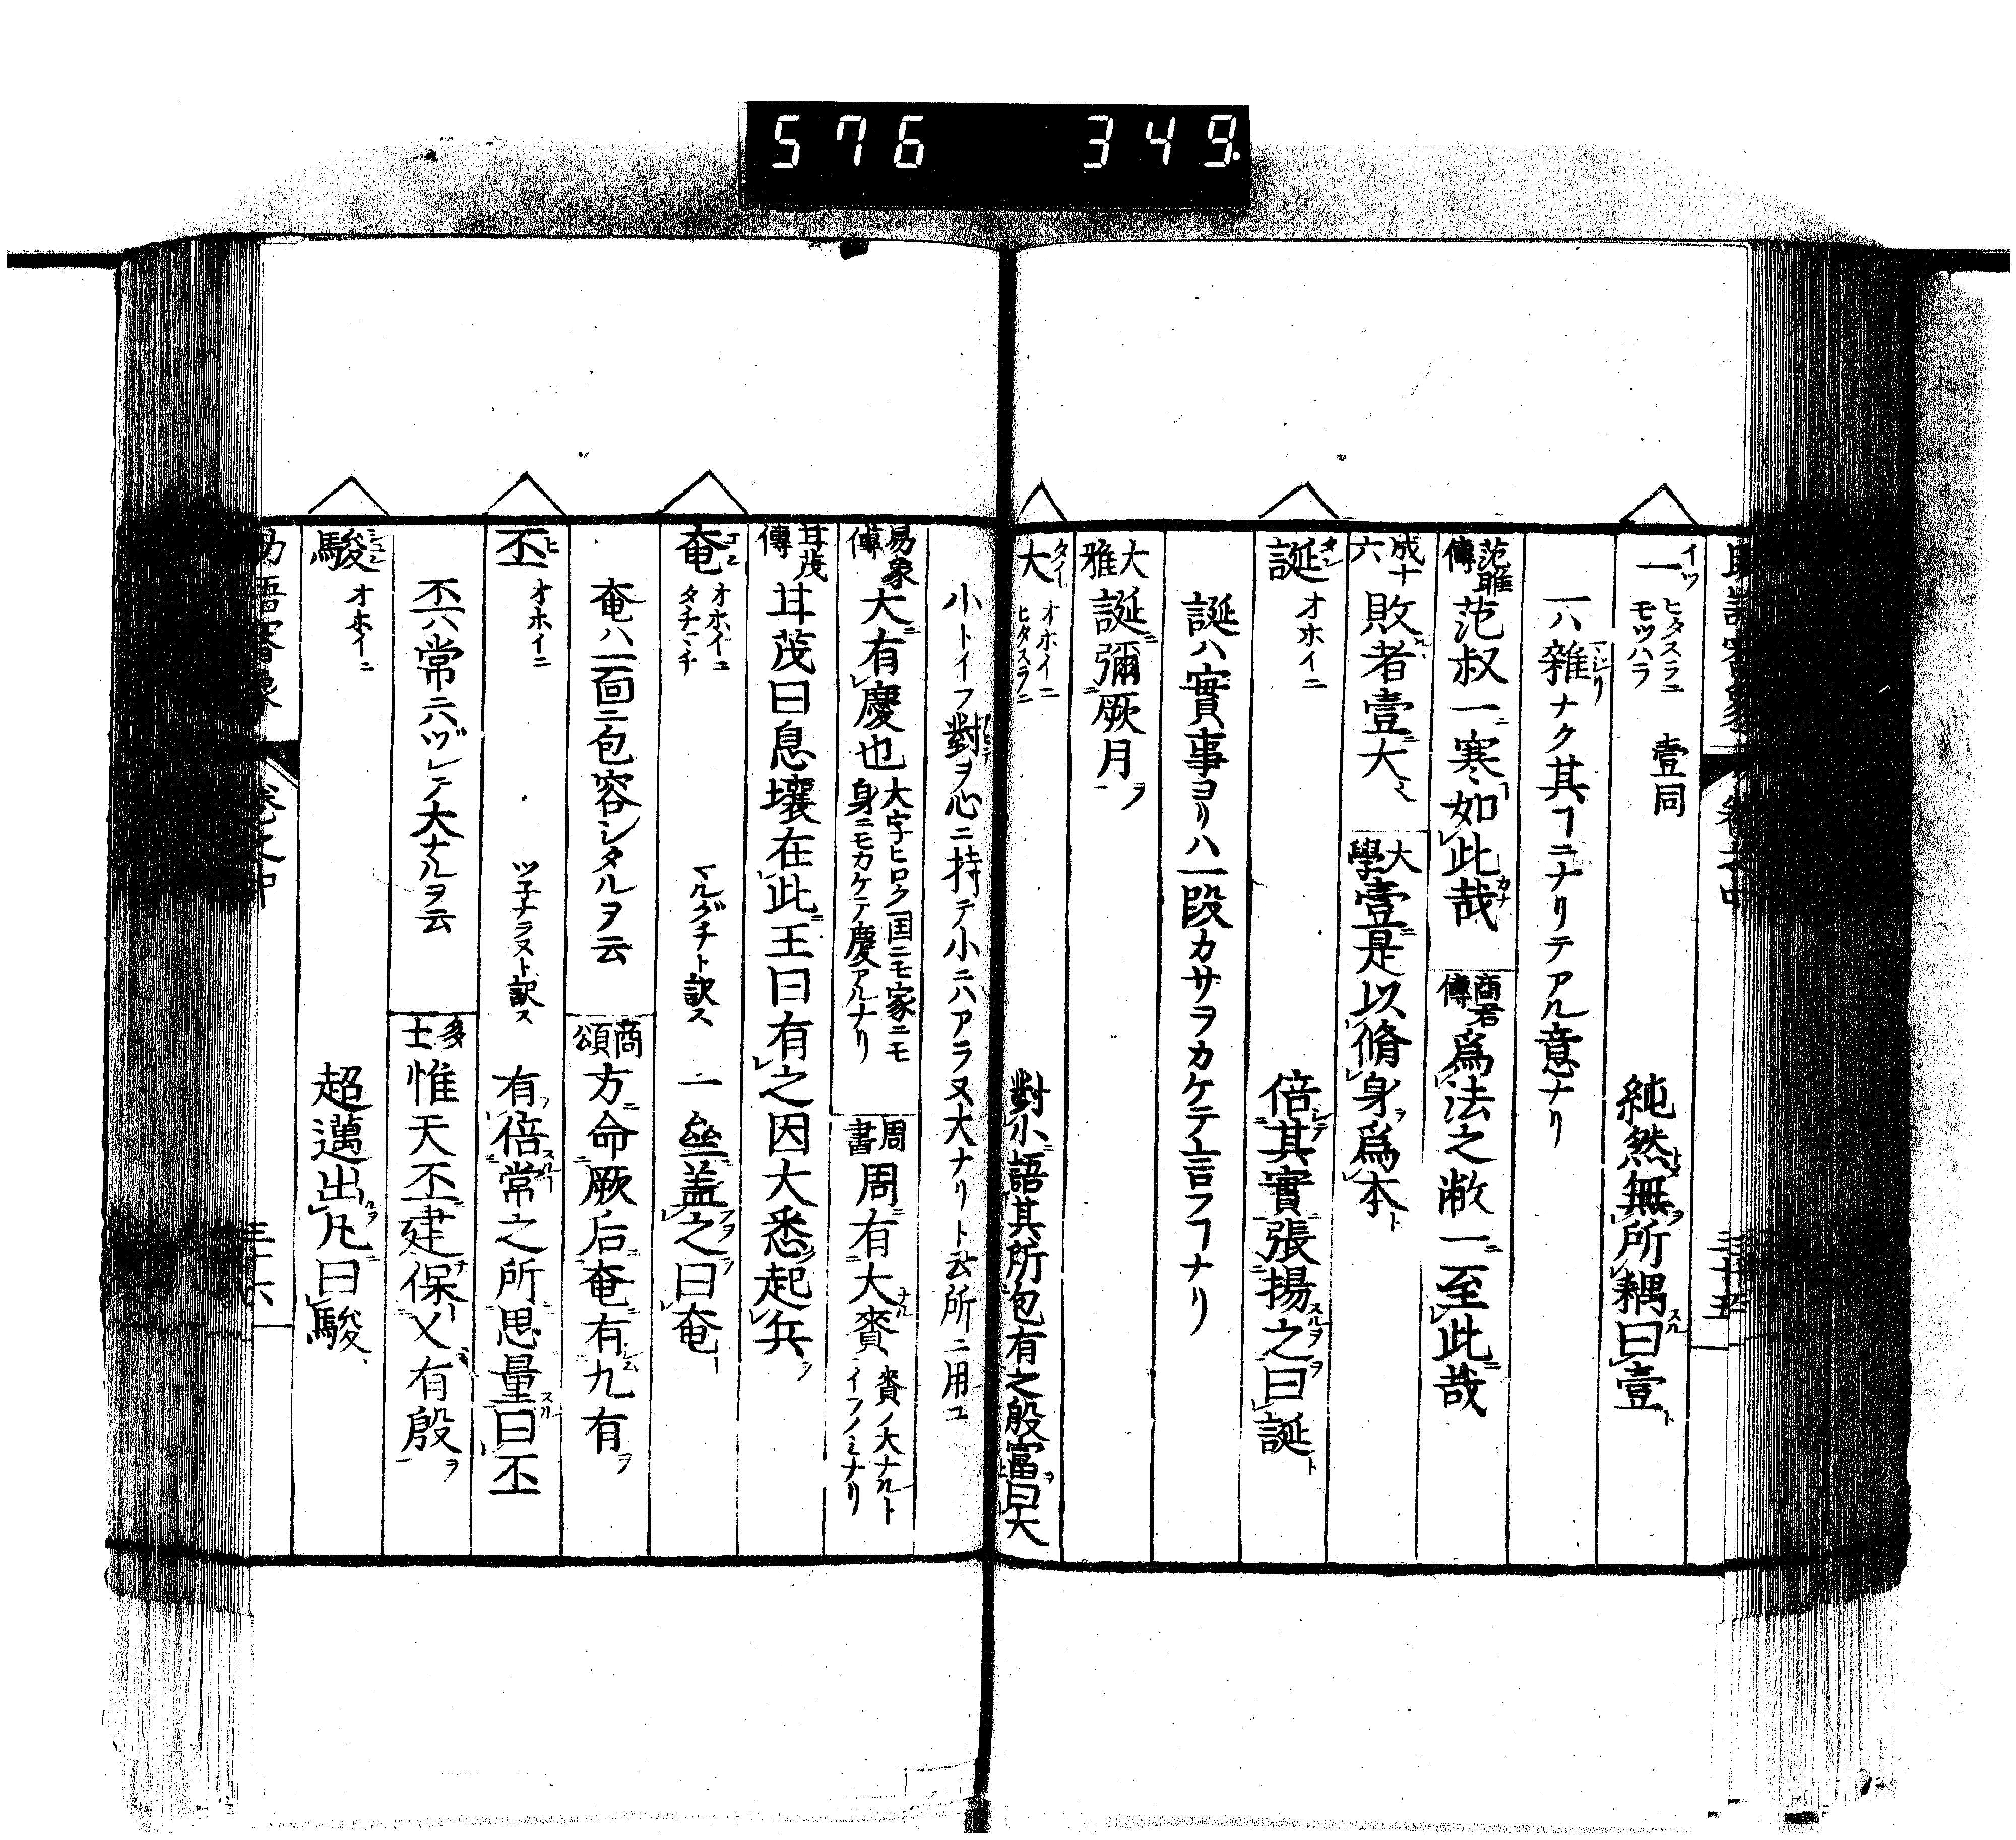 576 349.
一 イツ ヒタスラニ モツハラ 壹同 純然無所耦曰壹
一ハ雜ナク其ヿニナリテアル意ナリ
范雎傳 范叔一寒如此哉 商君傳 爲法之敝一至此哉
成十六 敗者壹大 大學 壹是以脩身爲本
誕 タン オホイニ 倍其實張揚之曰誕
誕ハ實事ヨリハ一段カサヲカケテ言フヿナリ
大雅 誕彌厥月
大 タイ オホイニ ヒタスラニ 對小語其所包有之殷富曰大
小トイフ對ヲ心ニ持テ小ニハアラヌ大ナリト云所ニ用ユ
易象傳 大有慶也 大字ヒロク国ニモ家ニモ身ニモカケテ慶アルナリ 周書 周有大賚 賚ノ大ナルトイフノミナリ
甘茂傳 甘茂曰息壤在此王曰有之因大悉起兵
奄 エン オホイニ タチマチ マルグチト訳ス 一亟蓋之曰奄
奄ハ一面ニ包容シタルヲ云 商頌 方命厥后奄有九有
丕 ヒ オホイニ ツ子ナラヌト訳ス 有倍常之所思量曰丕
丕ハ常ニハヅレテ大ナルヲ云 多士 惟天丕建保乂有殷
駿 シュン オホイニ 超邁出凡曰駿
助語審象 卷之中 三十六